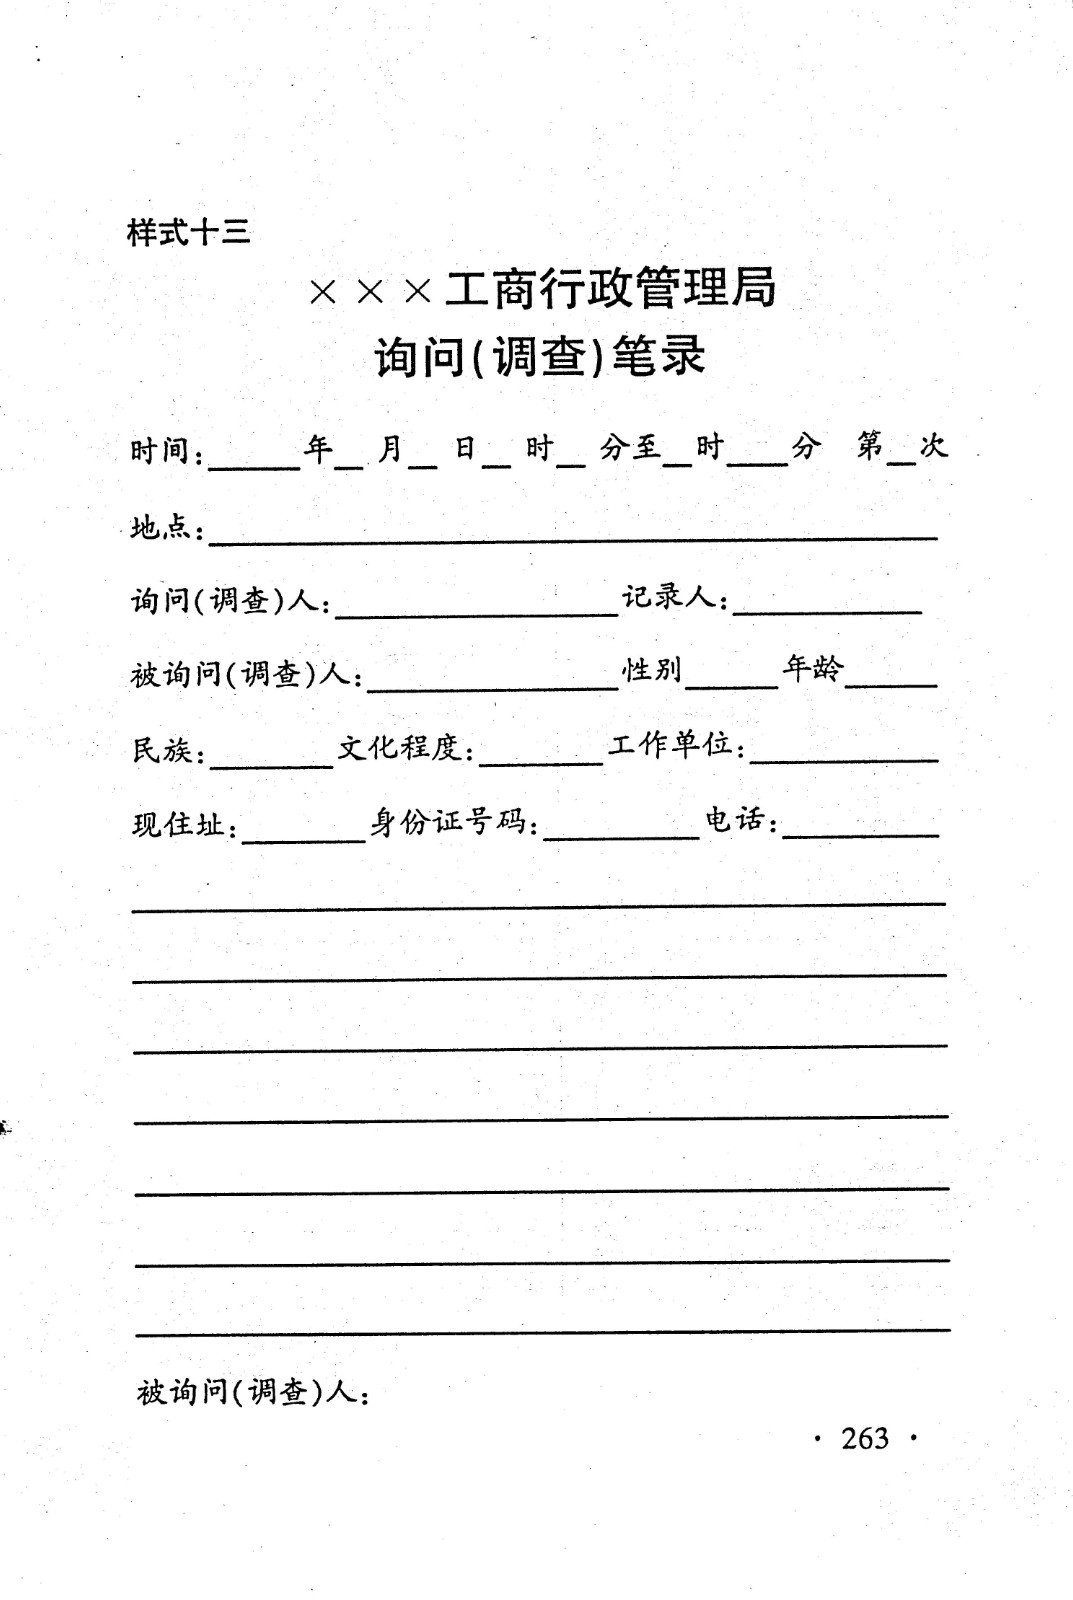 样式十三
×××工商行政管理局
询问(调查)笔录
时间:______年__月__日__时__分至__时____分 第__次
地点:______________________________
询问(调查)人:________________记录人:____________
被询问(调查)人:________________性别______年龄______
民族:________文化程度:________工作单位:____________
现住址:________身份证号码:__________电话:__________
被询问(调查)人:
· 263 ·